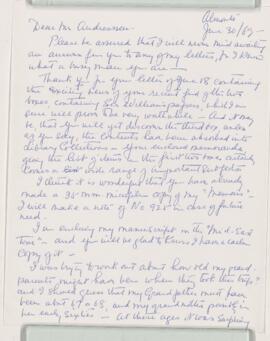 Almonte
June 30/69
Dear Mr Andreassen -
Please be assured that I will never mind awaiting
an answer from you to any of my letters, for I know
what a busy man you are -
Thank you for your letter of June 18 containing
the exciting news of your recent find of the two
boxes, containing Sir William's papers, which I am
sure will prove to be very worthwhile - And it may
be, that you will yet discover the third box, unless
as you say, the contents have been absorbed into
Library Collections - Your enclosed memoranda
give the list of items in the first two boxes, certainly
covers a wide range of important subjects
I think it is wonderful that you have already
made a 35-mm microfilm copy of my "Memoirs"
I will make a note of No 925 in case of future
need.
I am enclosing my manuscript on the "Mid-East
Tour" - and you will be glad to know I have a carbon
Copy of it -
I was trying to work out about how old my grand-
parents might have been when they took this trip
and I should guess that my Grandfather must have
been about 67 or 68, and my grandmother possibly in
her early sixties - At these ages it was surprising